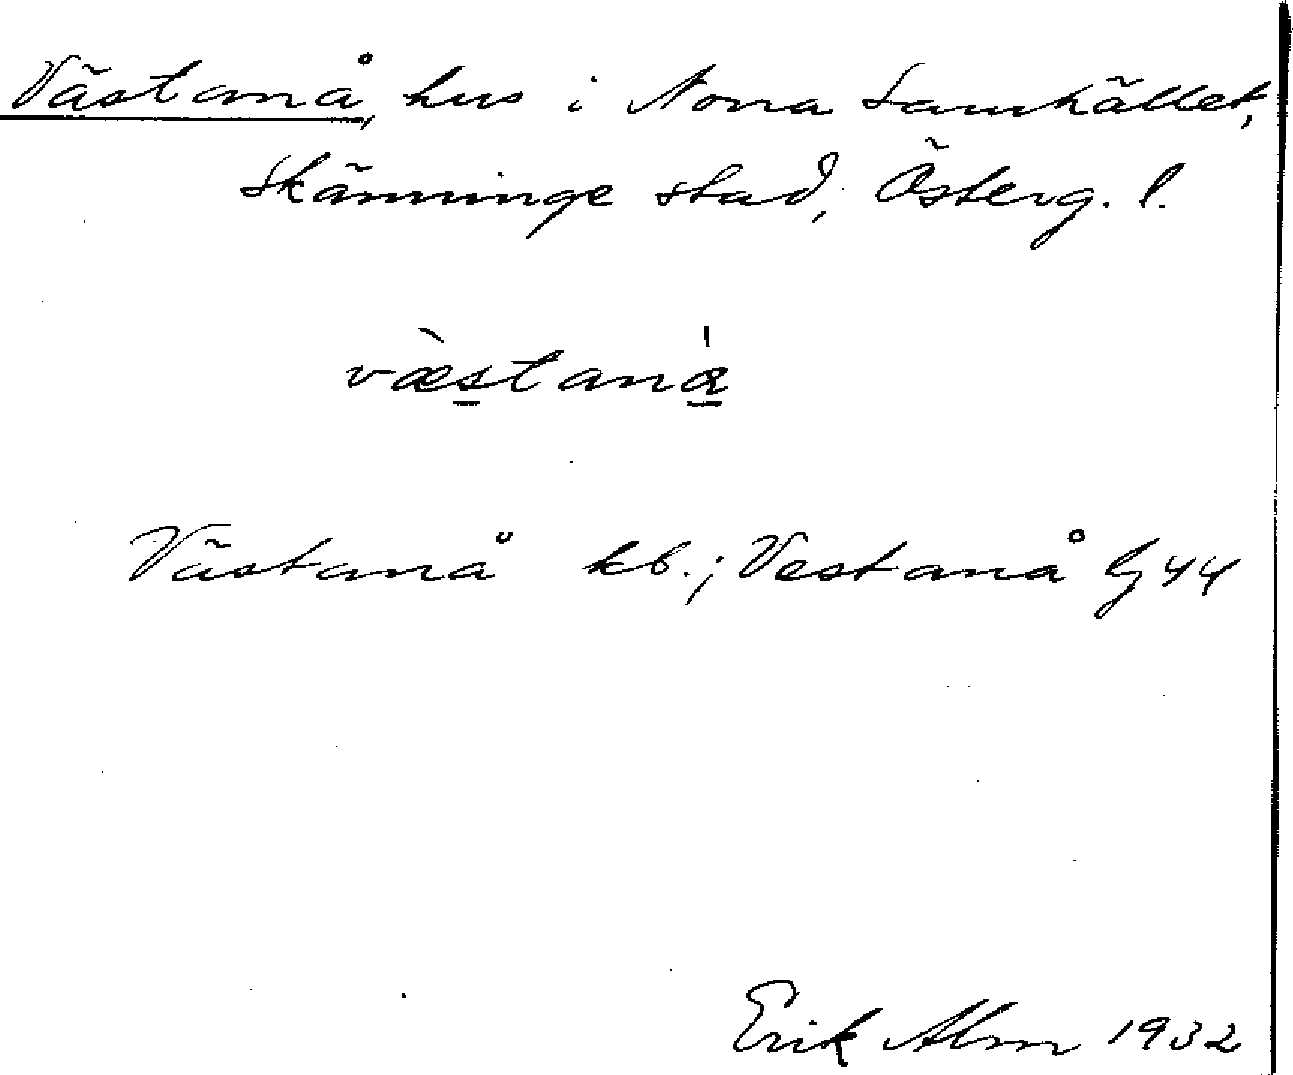 Västanå, hus i Norra Samhället,
Skänninge stad, Österg. l.
væ̀stanà
Västanå kb.; Vestanå Lj 44
Erik Alm 1932